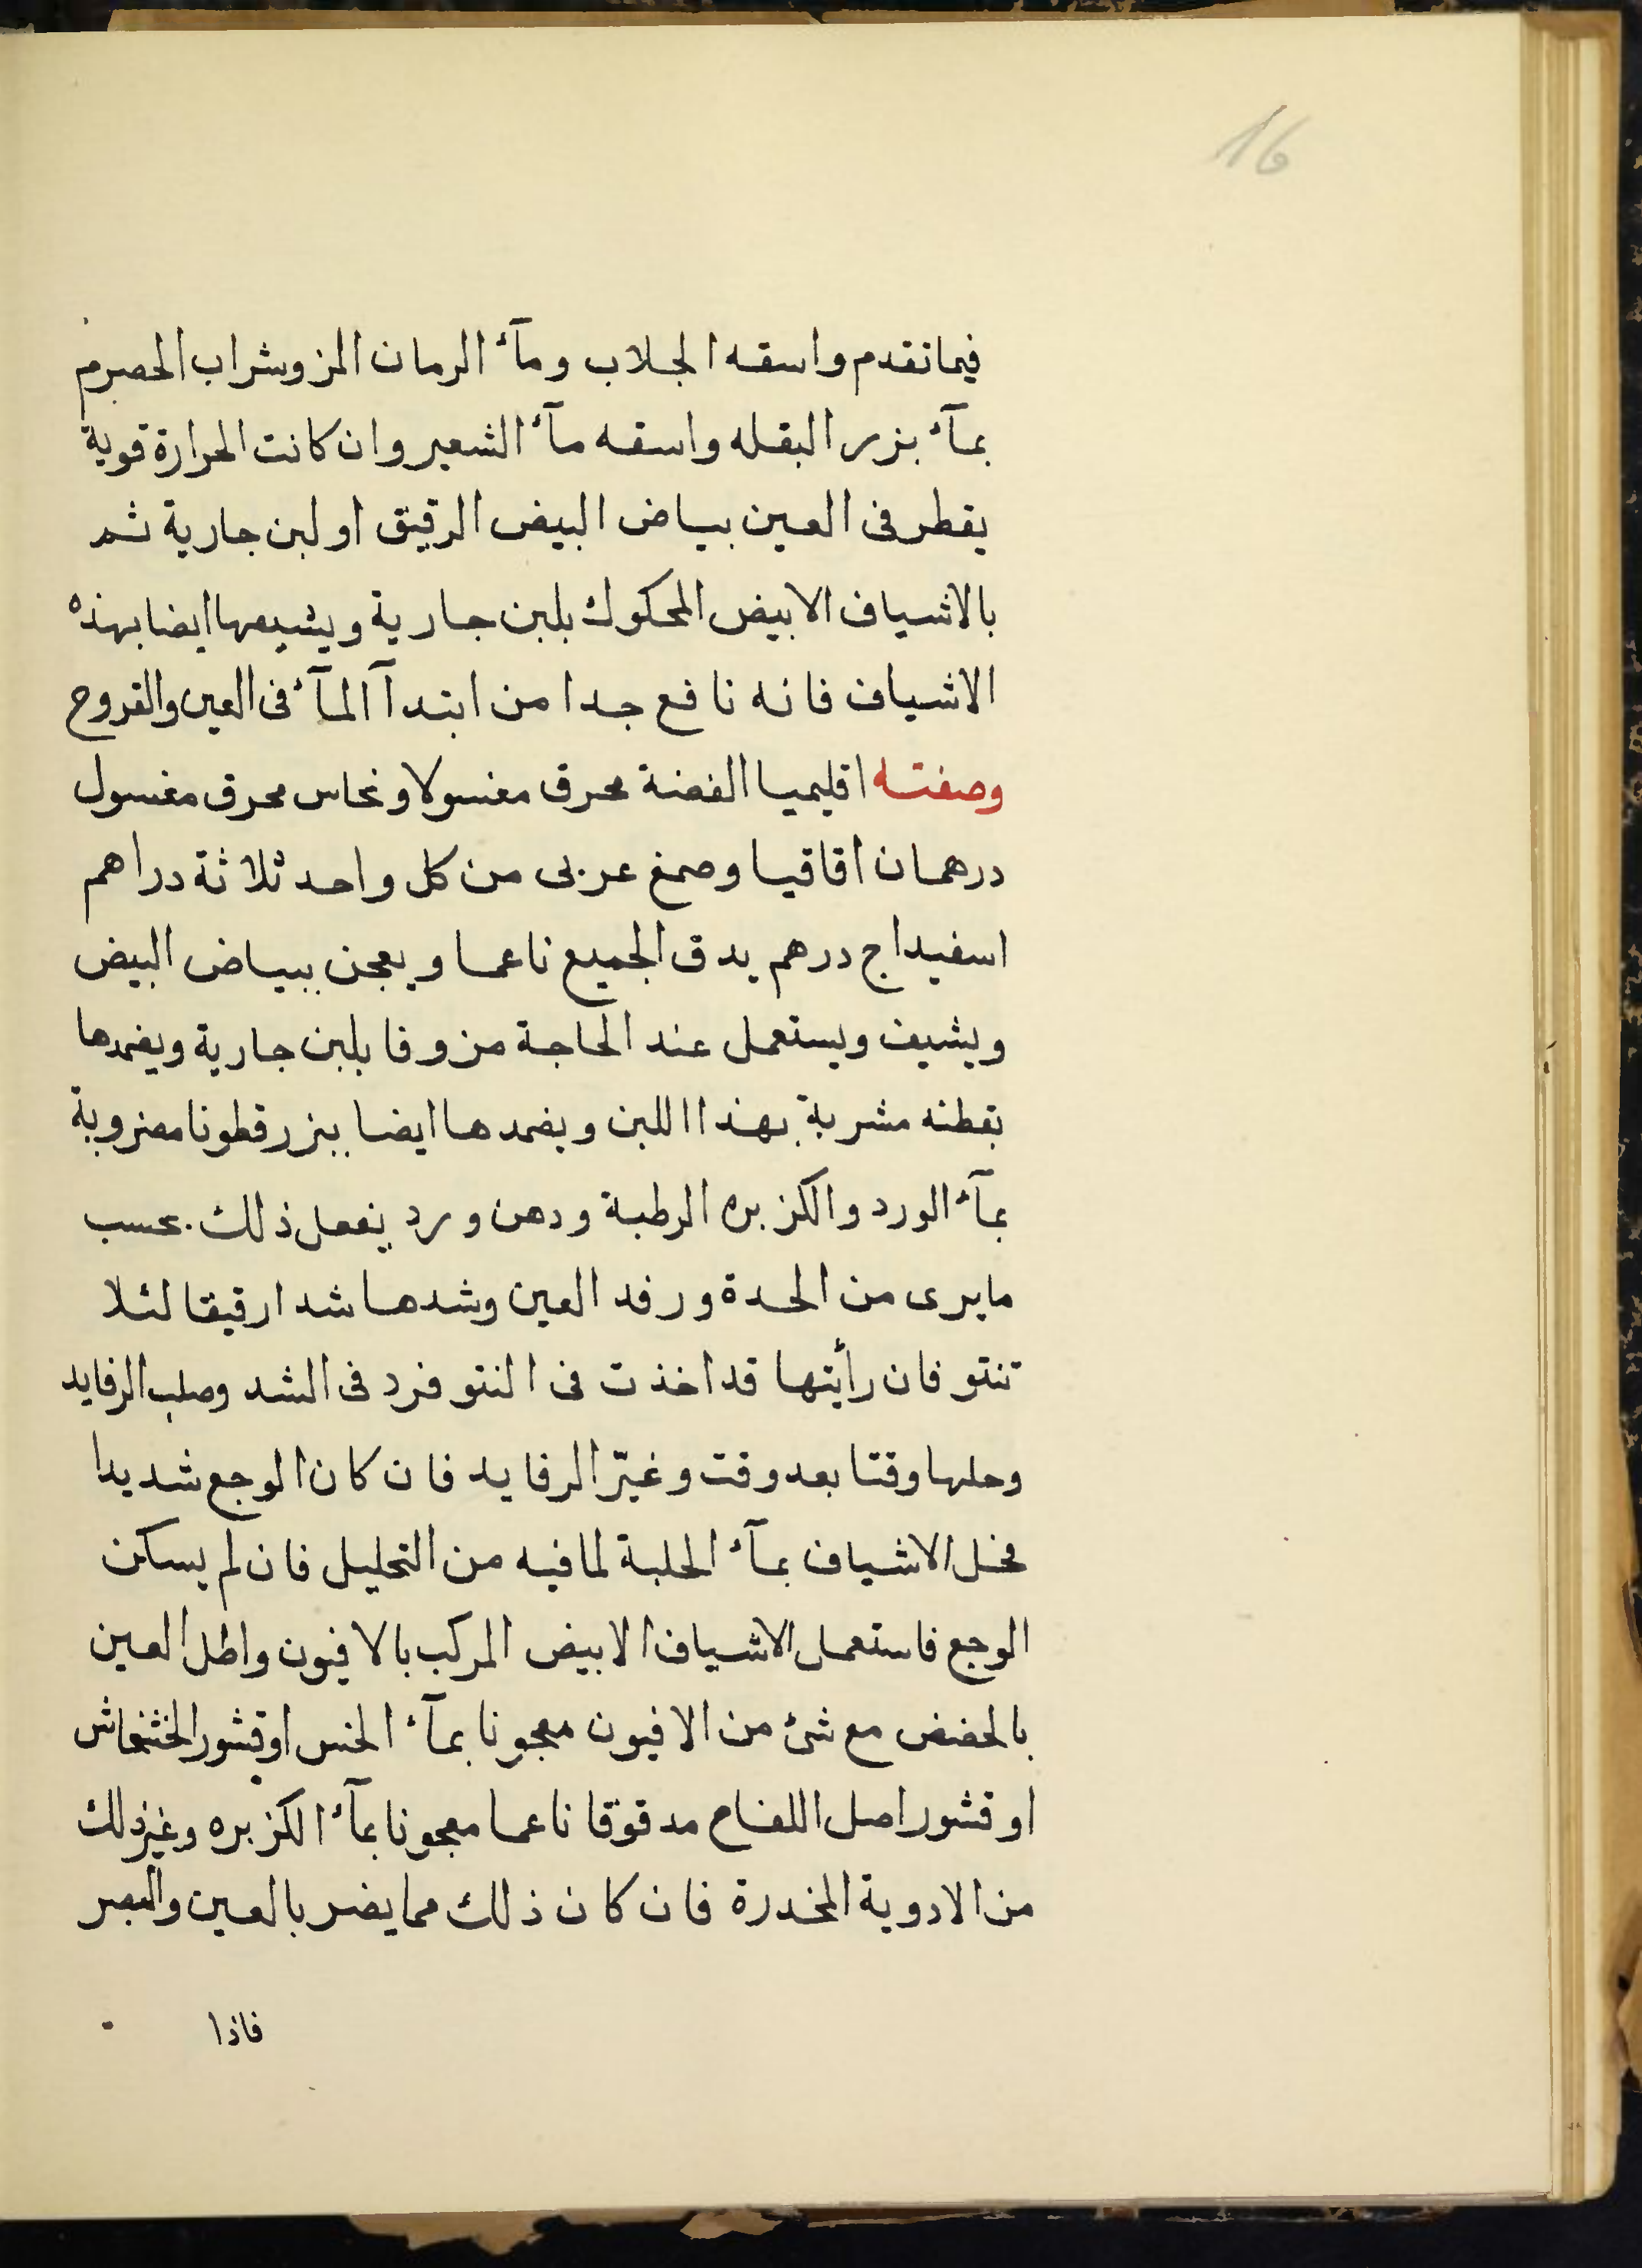 16
فيما تقدم واسقه الجلاب ومآء الرمان المز وشراب الحصرم
بمآء بزر البقله واسقه مآء الشعير وان كانت الحرارة قوية
يقطر فى العين بياض البيض الرقيق او لبن جارية ثم
بالاشياف الابيض المحكوك بلبن جارية ويشيعها ايضا بهذه
الاشياف فانه نافع جدا من ابتدآ المآء فى العين والقروح
وصفته اقليميا الفضة محرق مغسولا ونحاس محرق مغسول
درهمان اقاقيا وصمغ عربى من كل واحد ثلاثة دراهم
اسفيداج درهم يدق الجميع ناعما ويعجن ببياض البيض
ويشيف ويستعمل عند الحاجة مزوفا بلبن جارية ويضمدها
بقطنه مشربة بهذا اللبن ويضمدها ايضا ببزر قطونا مضروبة
بمآء الورد والكزبره الرطبة ودهن ورد يفعل ذلك بحسب
ما يرى من الحدة ورفد العين وشدها شدا رقيقا لئلا
تنتو فان رأيتها قد اخذت فى النتو فزد فى الشد وصلب الرفايد
وحلها وقتا بعد وقت وغيّر الرفايد فان كان الوجع شديدا
فحل الاشياف بمآء الحلبة لما فيه من التحليل فان لم يسكن
الوجع فاستعمل الاشياف الابيض المركب بالافيون واطل العين
بالحضض مع شئ من الافيون معجونا بمآء الخس او قشور الخشخاش
او قشور اصل اللفاح مدقوقا ناعما معجونا بمآء الكزبره وغير ذلك
من الادوية المخدرة فان كان ذلك مما يضر بالعين والبصر
فاذا